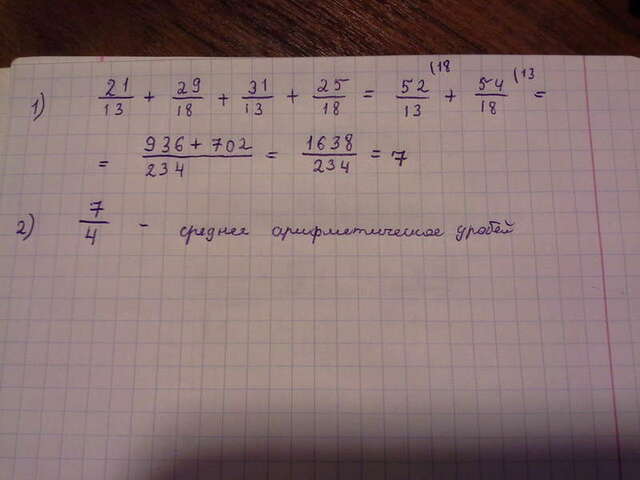 1) 21/13 + 29/18 + 31/13 + 25/18 = 52/13 (18 + 54/18 (13 =
= 936 + 702/234 = 1638/234 = 7
2) 7/4 - среднее арифметическое дробей